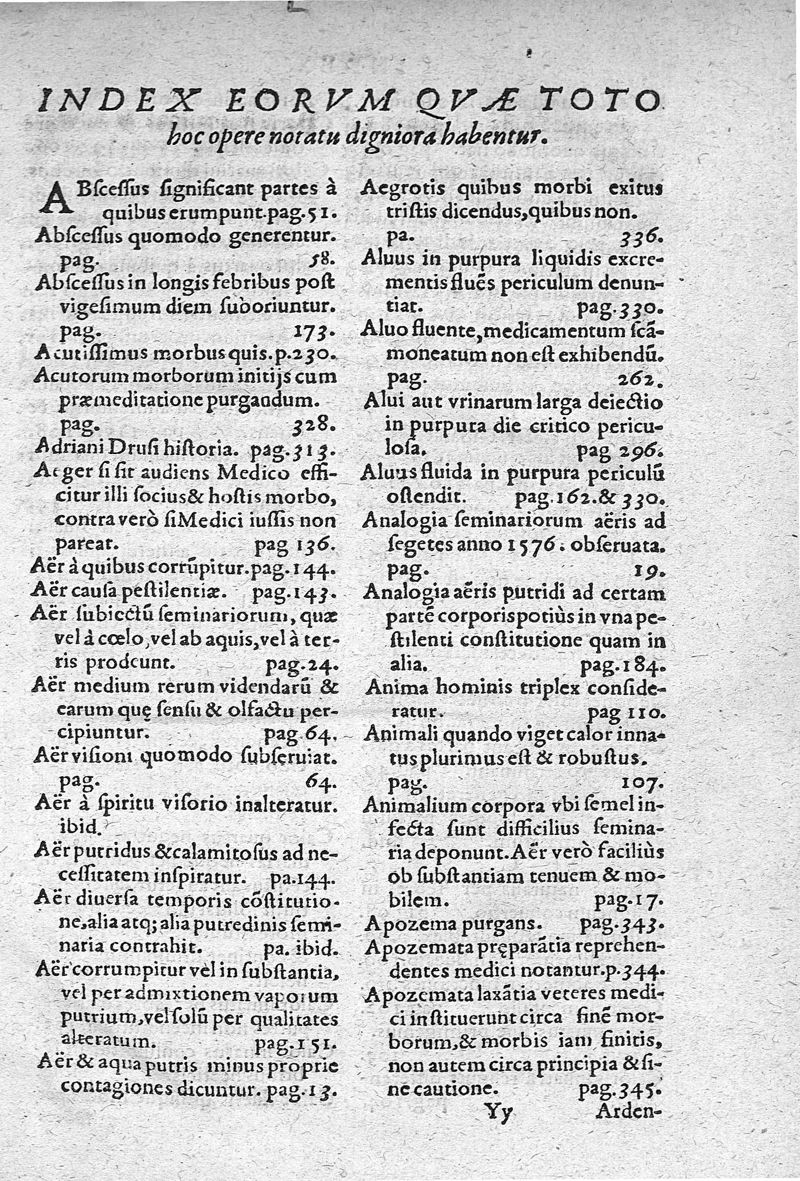 INDEX EORVM QVÆ TOTO
hoc opere notatu digniora habentur.
ABſceſſus ſignificant partes à
quibus erumpunt.pag.51.
Abſceſſus quomodo generentur.
pag. 58.
Abſceſſus in longis febribus poſt
vigeſimum diem ſuboriuntur.
pag. 173.
Acutiſſimus morbus quis.p.230.
Acutorum morborum initijs cum
præmeditatione purgandum.
pag. 328.
Adriani Druſi hiſtoria. pag.313.
Aeger ſi ſit audiens Medico effi-
citur illi ſocius& hoſtis morbo,
contra verò ſiMedici iuſſis non
pareat. pag 136.
Aër à quibus corrūpitur.pag.144.
Aër cauſa peſtilentiæ. pag.143.
Aër ſubiectū ſeminariorum, quæ
vel à cœlo,vel ab aquis,vel à ter-
ris prodeunt. pag.24.
Aër medium rerum videndarū &
earum quę ſenſu & olfactu per-
cipiuntur. pag 64.
Aër viſioni quomodo ſubſeruiat.
pag. 64.
Aër à ſpiritu viſorio inalteratur.
ibid.
Aër putridus &calamitoſus ad ne-
ceſſitatem inſpiratur. pa.144.
Aër diuerſa temporis cōſtitutio-
ne,alia atq; alia putredinis ſemi-
naria contrahit. pa. ibid.
Aër corrumpitur vel in ſubſtantia,
vel per admixtionem vaporum
putrium,vel ſolū per qualitates
alteratum. pag.151.
Aër & aqua putris minus proprie
contagiones dicuntur. pag.13.
Aegrotis quibus morbi exitus
triſtis dicendus,quibus non.
pa. 336.
Aluus in purpura liquidis excre-
mentis fluēs periculum denun-
tiat. pag.330.
Aluo fluente,medicamentum ſcā-
moneatum non eſt exhibendū.
pag. 262.
Alui aut vrinarum larga deiectio
in purpura die critico pericu-
loſa. pag 296.
Aluus fluida in purpura periculū
oſtendit. pag.162.& 330.
Analogia ſeminariorum aëris ad
ſegetes anno 1576. obſeruata.
pag. 19.
Analogia aëris putridi ad certam
partē corporis potiùs in vna pe-
ſtilenti conſtitutione quam in
alia. pag.184.
Anima hominis triplex conſide-
ratur. pag 110.
Animali quando viget calor inna-
tus plurimus eſt & robuſtus.
pag. 107.
Animalium corpora vbi ſemel in-
fecta ſunt difficilius ſemina-
ria deponunt.Aër verò faciliùs
ob ſubſtantiam tenuem & mo-
bilem. pag.17.
Apozema purgans. pag.343.
Apozemata pręparātia reprehen-
dentes medici notantur.p.344.
Apozemata laxātia veteres medi-
ci inſtituerunt circa finē mor-
borum,& morbis iam finitis,
non autem circa principia & ſi-
ne cautione. pag.345.
Yy Arden-